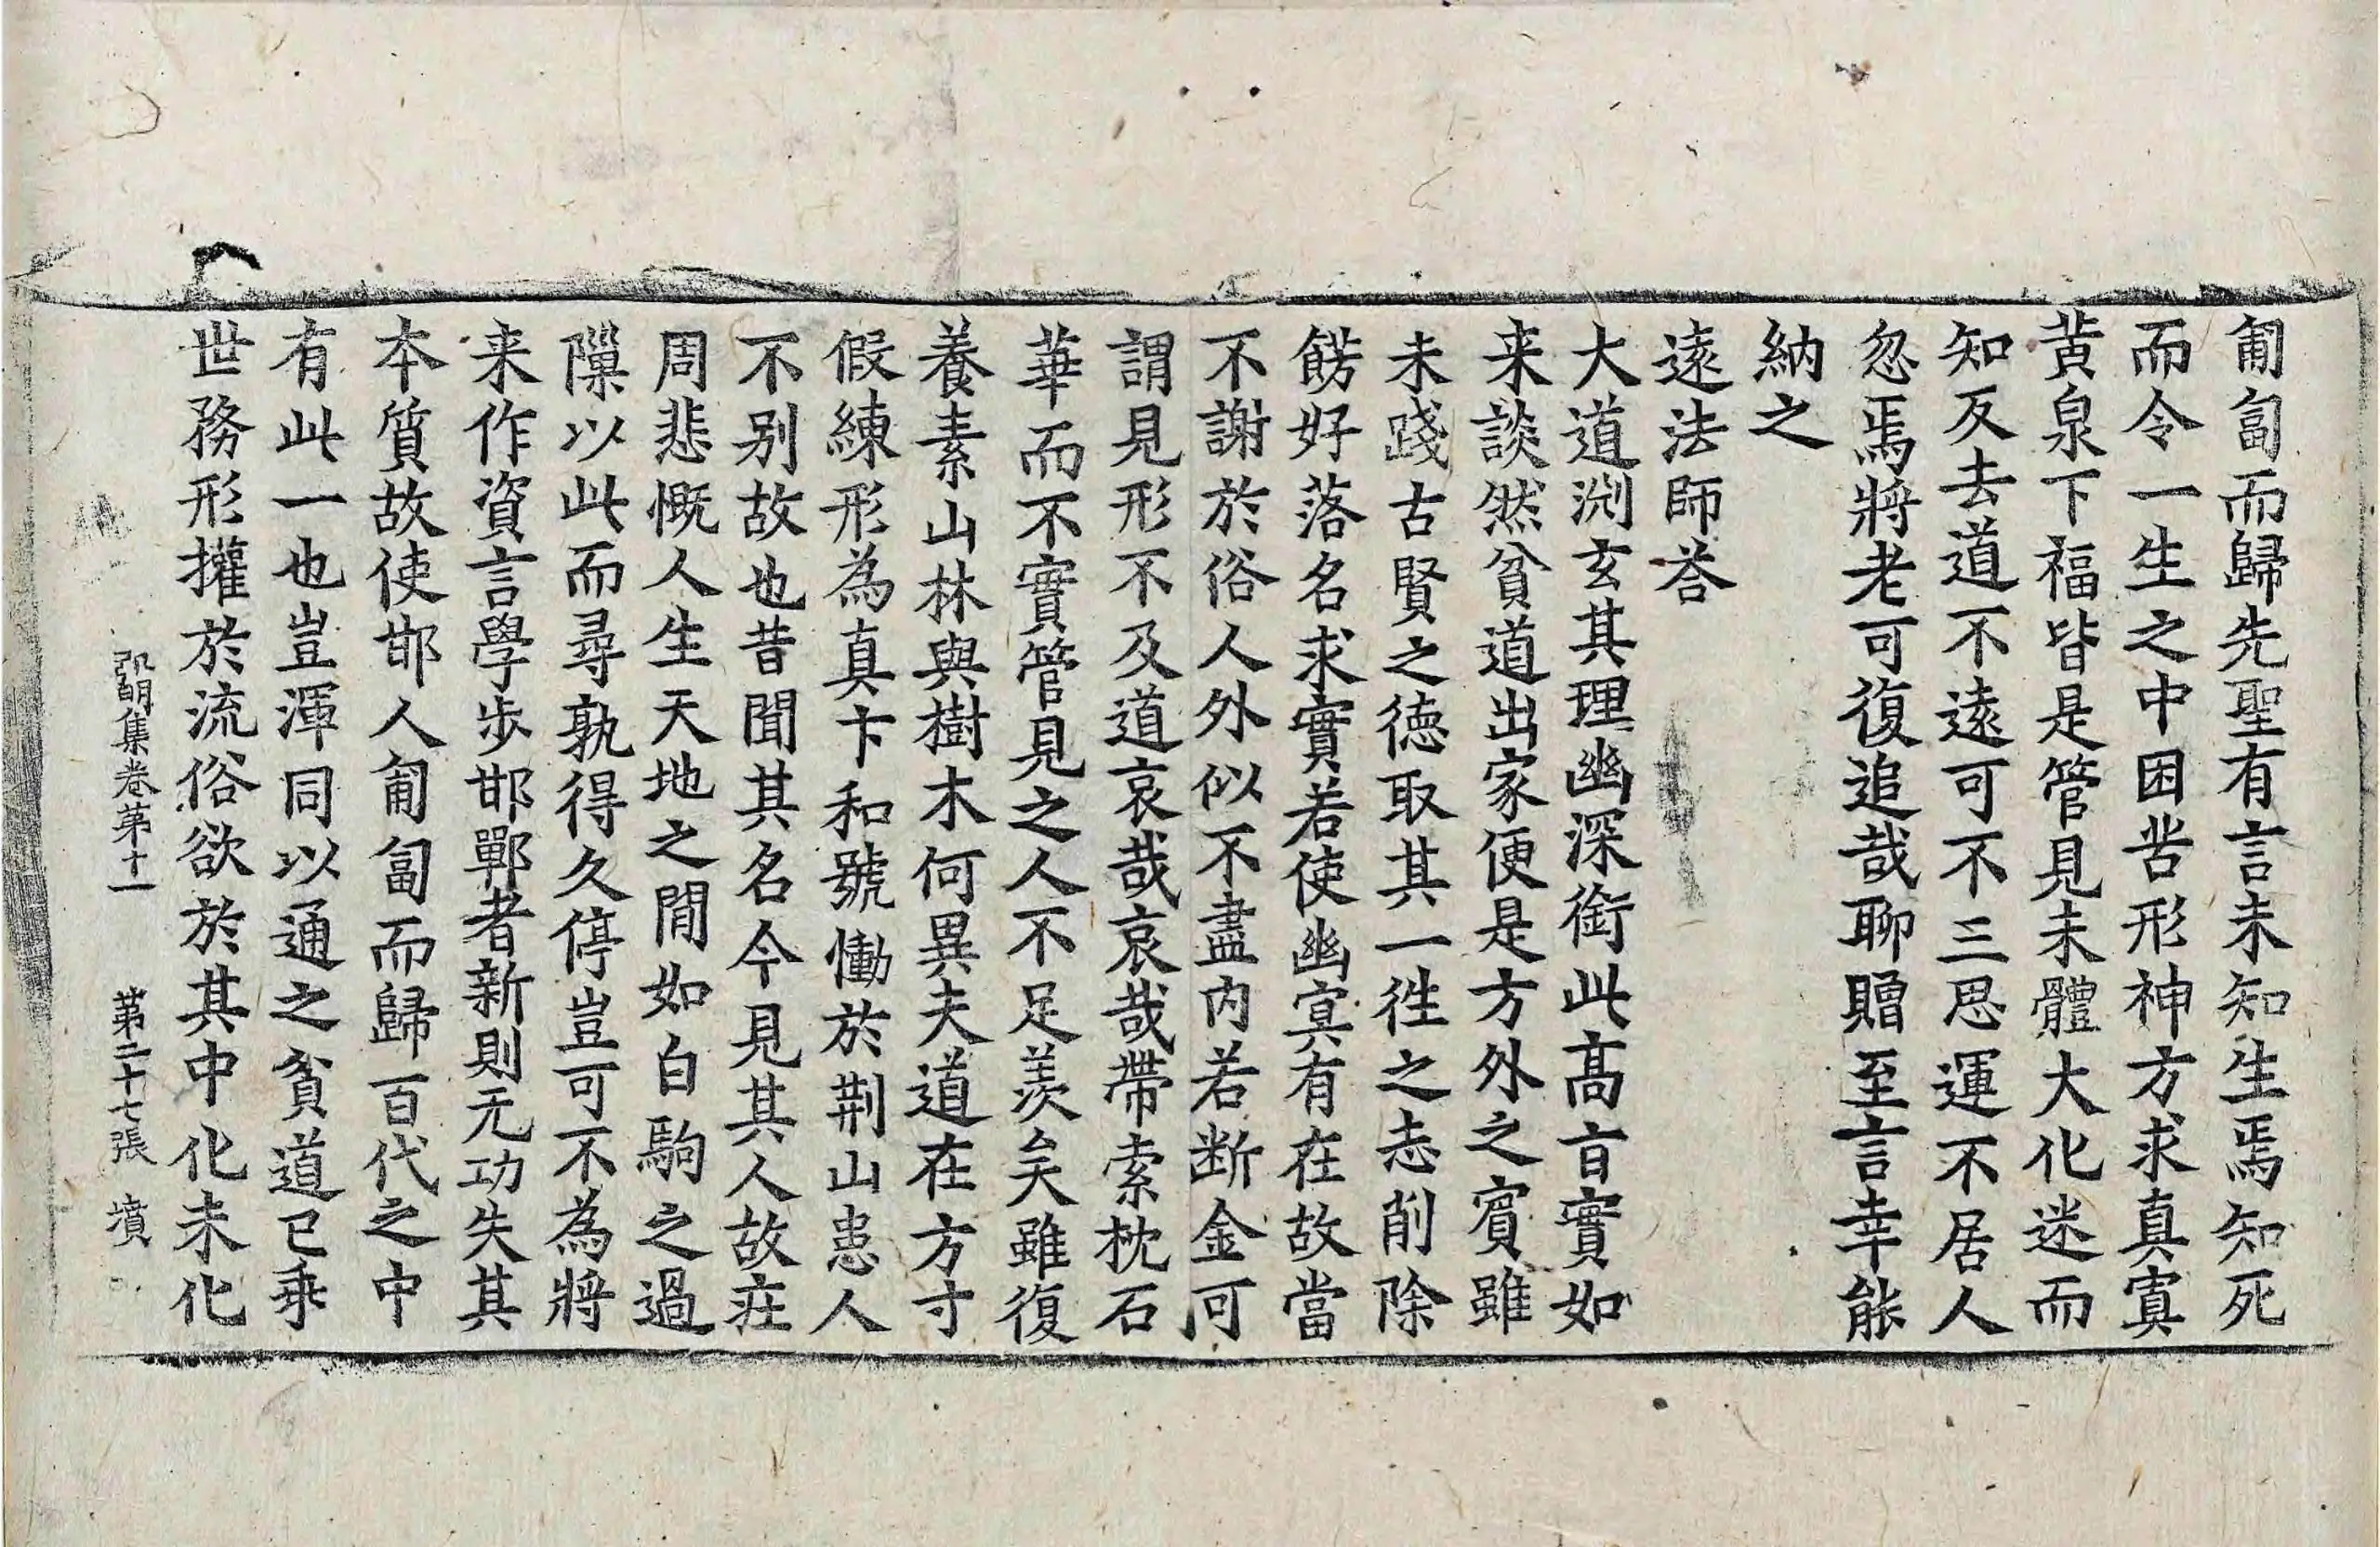 匍匐而歸先聖有言未知生焉知死
而令一生之中困苦形神方求真寘
黄泉下福皆是管見未體大化迷而
知反去道不遠可不三思運不居人
忽焉將老可復追哉聊贈至言幸能
納之
遠法師荅
大道渕玄其理幽深銜此髙旨實如
来談然貧道出家便是方外之賓雖
未踐古賢之德取其一徃之志削除
餝好落名求實若使幽寘有在故當
不謝於俗人外似不盡内若断金可
謂見形不及道哀哉哀哉帶索枕石
華而不實管見之人不足羡矣雖復
養素山林與樹木何異夫道在方寸
假練形為真卞和號慟於荆山患人
不别故也昔聞其名今見其人故莊
周悲慨人生天地之間如白駒之過
隟以此而尋孰得久停豈可不為將
来作資言學步邯鄲者新則无功失其
本質故使邯人匍匐而歸百代之中
有此一也豈渾同以通之貧道已乗
世務形攉於流俗欲於其中化未化
弘明集卷苐十一 苐二十七張 墳